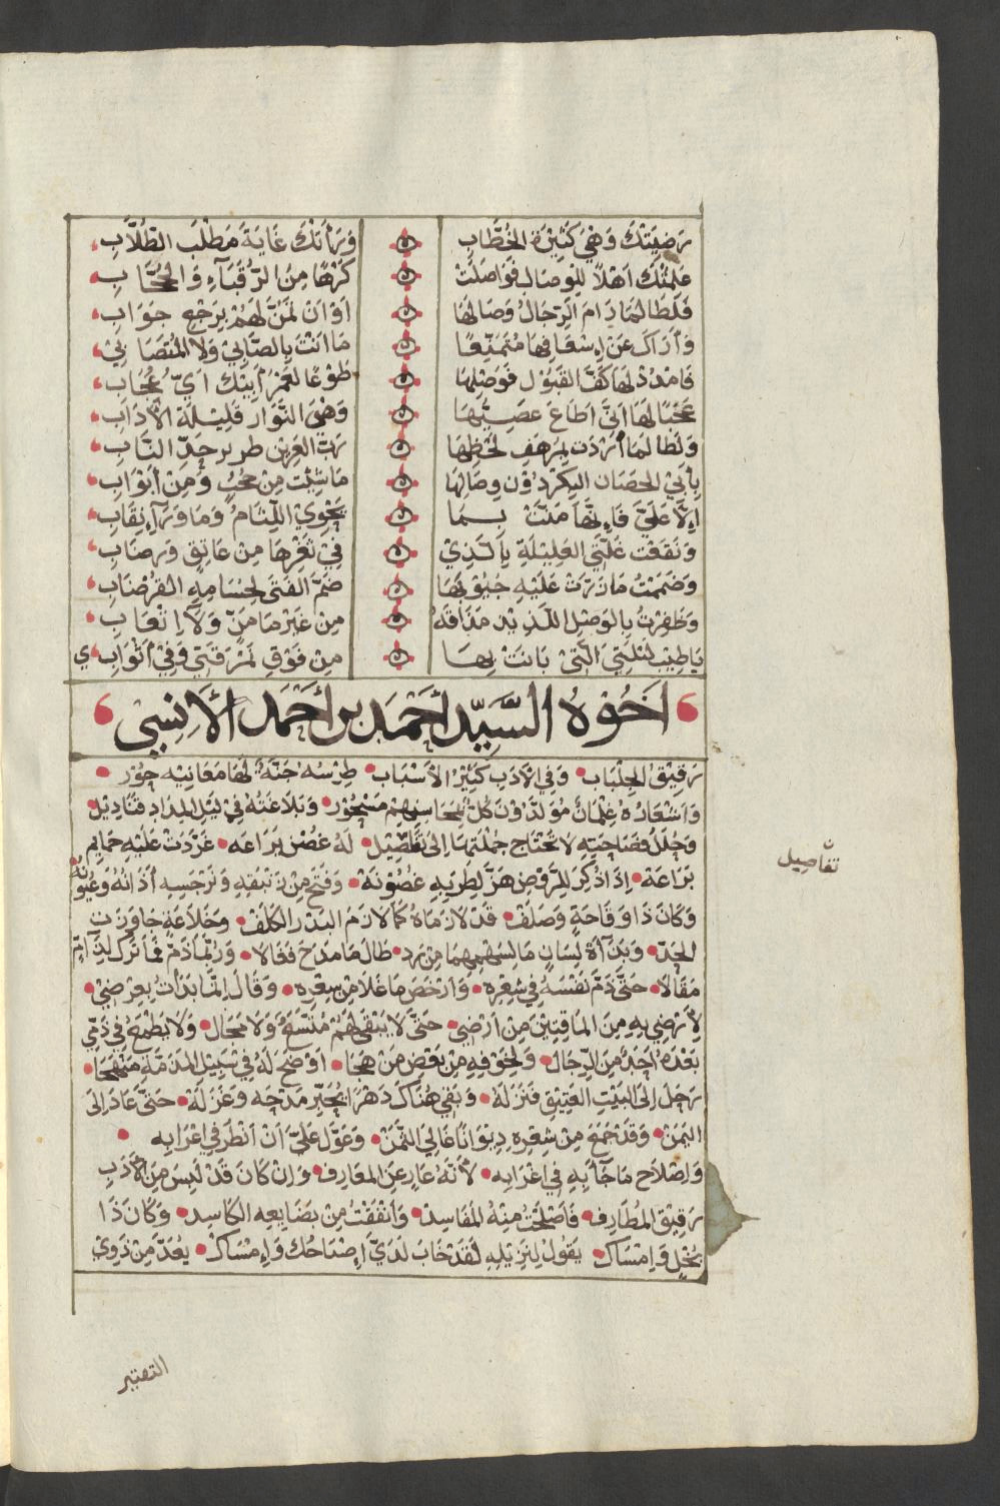 رَضِيَتْكَ وَهْيَ كَثِيرَةُ الخُطَّابِ وَرَأَتْكَ غَايَةَ مَطْلَبِ الطُّلَّابِ
عَلِمَتْكَ اَهْلًا لِلْوِصَالِ فَوَاصَلَتْ كَرْهًا مِنَ الرُّقَبَاءِ وَالحُجَّابِ
فَلَطَالَمَا رَامَ الرِّجَالُ وِصَالَهَا اَوْ اَنْ تَمُنَّ لَهُمْ بِرَجْعِ جَوَابِ
وَأَرَاكَ عَنْ اِسْعَافِهَا مُتَمَنِّعًا مَا انْتَ بِالصَّابِي وَلَا المُتَصَابِي
فَامْدُدْ لَهَا كَفَّ القَبُوْلِ فَوَصْلُهَا طَوْعًا لَعَمْرُ اَبِيْكَ اَيُّ عُجَابِ
عَجَبًا لَهَا اَنَّى اَطَاعَ عَصِيُّهَا وَهْيَ النَّوَارُ قَلِيْلَةُ الْآدَابِ
وَلَطَالَمَا أَرْدَتْ بِمُرْهَفِ لَحْظِهَا رَبَّ العَرِيْنِ طرير حَدِّ النَّابِ
بِأَبِيْ الحَصَانِ البِكْرِ دُوْنَ وِصَالِهَا مَا شِئْتَ مِنْ حُجُبٍ وَمِنْ أَبْوَابِ
اِلَّا عَلَيَّ فَاِنَّهَا مَنَّتْ بِمَا يَحْوِيْ اللِّثَامُ وَمَا وَرَآءَ نِقَابِ
وَنَقَعْتُ غُلَّتِيَ العَلِيْلَةَ بِالَّذِيْ فِيْ ثَغْرِهَا مِنْ عَاتِقٍ وَرُضَابِ
وَضَمَمْتُ مَا زَرَّتْ عَلَيْهِ جُيُوْبَهَا ضَمَّ الفَتَى لِحُسَامِهِ القِرْضَابِ
وَظَفِرْتُ بِالوَصْلِ اللَّذِيْذِ مَذَاقُهُ مِنْ غَيْرِ مَا مَنٍّ وَلَا اِتْعَابِ
يَا طِيْبَ لَيْلَتِيَ الَّتِيْ بَانَتْ بِهَا مِنْ فَوْقِ نُمْرُقَتِيْ وَفِيْ أَثْوَابِيْ
اَخُوْهُ السَّيِّدُ أَحْمَدُ بْنُ أَحْمَدَ الآنِسِيّ
رَقِيْقُ الجِلْبَابِ وَفِي الاَدَبِ كَثِيْرُ الأَسْبَابِ طِرْسُهُ جَنَّةٌ لَهَا مَعَانِيْهِ حُوْر
وَاَشْعَارُهُ غِلْمَانٌ مُوَلَّدُوْنَ كُلٌّ بِمَحَاسِنِهِمْ مَسْحُوْر وَبَلَاغَتُهُ فِيْ لَيْلِ المِدَادِ قَنَادِيْل
وَجُمَلُ فَصَاحَتِهِ لَا تَحْتَاج جُمْلَتُهَا اِلَى تَفْصِيْل لَهُ غُصْنُ يَرَاعَه غَرَّدَتْ عَلَيْهِ حَمَايِم
تفاصيل
بَرَاعَة اِذَا ذُكِرَ لِلرَّوْضِ هَزَّ لِطَرَبِهِ غُصُوْنَهْ وَفَتَحَ مِنْ زَنْبَقِهِ وَنَرْجِسِهِ آذَانَهُ وَعُيُوْنَهُ
وَكَانَ ذَا وَقَاحَةٍ وَصَلَفْ قَدْ لَازَمَاهُ كَمَا لَازَمَ البَدْرَ الكَلَفْ وَخَلَاعَةٍ جَاوَزَتِ
الحَدّ وَبَذَآءَةِ لِسَانٍ مَا لِسَهْمِهِمَا مِنْ رَدّ طَالَمَا مَدَحَ فَغَالَا وَرُبَّمَا ذَمَّ فَمَا تَرَكَ لِذِيْ امّ
مَقَالًا حَتَّى ذَمَّ نَفْسَهُ فِيْ شِعْرِه وَارْخَصَ مَا غَلَا مِنْ سِعْرِه وَقَالَ اِنَّمَا بَدَأْتُ بِعِرْضِيْ
لِأَرْضِيْ بِهِ مِنَ البَاقِيْنَ مَنْ اُرْضِيْ حَتَّى لَا يَبْقَى لَهُمْ مُتَّسَعٌ وَلَا مَجَال وَلَا يَطْمَعُ فِيْ ذَمِّي
بَعْدَهُ اَحَدٌ مِنَ الرِّجَالْ وَلِخَوْفِهِ مِنْ بَعْضِ مَنْ هَجَا اَوْضَحَ لَهُ فِيْ سَبِيْلِ المَذَمَّةِ مَنْهَجَا
رَحَلَ اِلَى البَيْتِ العَتِيْقِ فَنَزَلَهْ وَبَقِيَ هُنَاكَ دَهْرًا يُحَبِّرُ مَدْحَهُ وَغَزَلَهْ حَتَّى عَادَ اِلَى
اليَمَنْ وَقَدْ جَمَعَ مِنْ شِعْرِهِ دِيْوَانًا غَالِيَ الثَّمَنْ وَعَوَّلَ عَلَيَّ اَنْ اَنْظُرَ فِي اِعْرَابِه
وَاِصْلَاحِ مَا جَاءَ بِهِ فِي اِغْرَابِه لِأَنَّهُ عَارٍ عَنِ المَعَارِف وَاِنْ كَانَ قَدْ لَبِسَ مِنَ الْأَدَبِ
رَقِيْقَ المُطَارِف فَاَصْلَحْتُ مِنْهُ المَفَاسِدْ وَاَنْفَقْتُ مِنْ بَضَايِعِهِ الكَاسِد وَكَانَ ذَا
بُخْلٍ وَاِمْسَاك يَقُوْلُ لِنَزِيْلِهِ لَقَدْ خَابَ لَدَيَّ اِصْبَاحُكَ وَاِمْسَاكْ يُعَدُّ مِنْ ذَوِيْ
التقتير